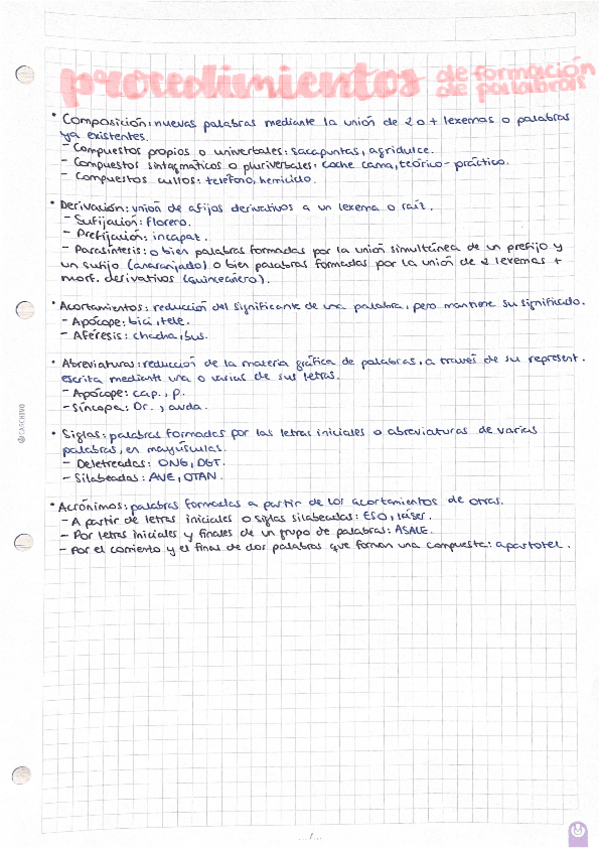 procedimientos de formación de palabras
• Composición: nuevas palabras mediante la unión de 2 o + lexemas o palabras
ya existentes.
- Compuestos propios o univerbales: sacapuntas, agridulce.
- Compuestos sintagmáticos o pluriverbales: coche cama, teórico-práctico.
- Compuestos cultos: teléfono, hemiciclo.
• Derivación: unión de afijos derivativos a un lexema o raíz.
- Sufijación: florero.
- Prefijación: incapaz.
- Parasíntesis: o bien palabras formadas por la unión simultánea de un prefijo y
un sufijo (anaranjado) o bien palabras formadas por la unión de 2 lexemas +
morf. derivativos (quinceañero).
• Acortamientos: reducción del significante de una palabra, pero mantiene su significado.
- Apócope: bici, tele.
- Aféresis: chacha, bus.
• Abreviaturas: reducción de la materia gráfica de palabras, a través de su represent.
escrita mediante una o varias de sus letras.
- Apócope: cap., p.
- Síncopa: Dr., avda.
• Siglas: palabras formadas por las letras iniciales o abreviaturas de varias
palabras, en mayúsculas.
- Deletreadas: ONG, DGT.
- Silabeadas: AVE, OTAN.
• Acrónimos: palabras formadas a partir de los acortamientos de otras.
- A partir de letras iniciales o siglas silabeadas: ESO, láser.
- Por letras iniciales y finales de un grupo de palabras: ASALE.
- Por el comienzo y el final de dos palabras que forman una compuesta: apartotel.
@CARCHIVO
.../...